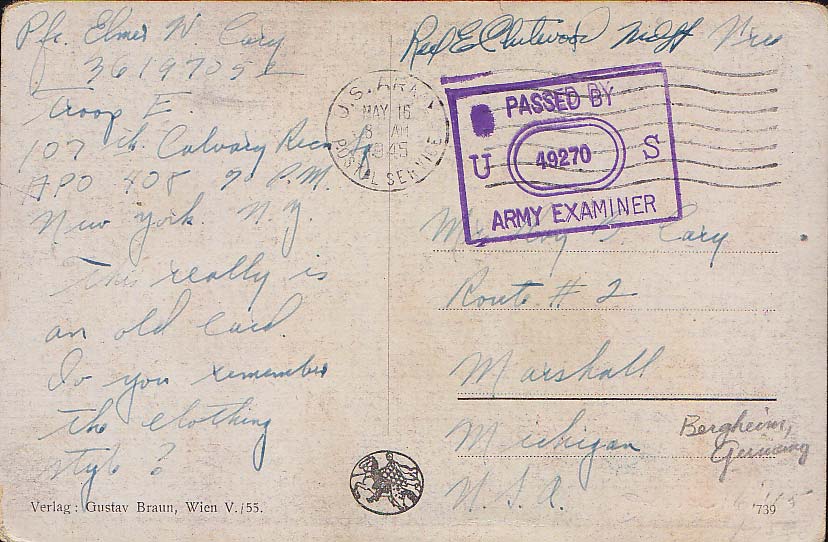 Pfc. Elmer W Cary
36197052
Troop E.
107 th. Calvary Recn
APO 408 % P.M.
New York. N.Y.
This really is
an old card.
Do you remember
the clothing
style?
Verlag: Gustav Braun, Wien V./55.
Rex E
U.S. ARMY
MAY 16
8 AM
1945
POSTAL SERVICE
PASSED BY
U 49270 S
ARMY EXAMINER
Cary
Route # 2
Marshall
Michigan
U.S.A.
Bergheim,
Germany
739